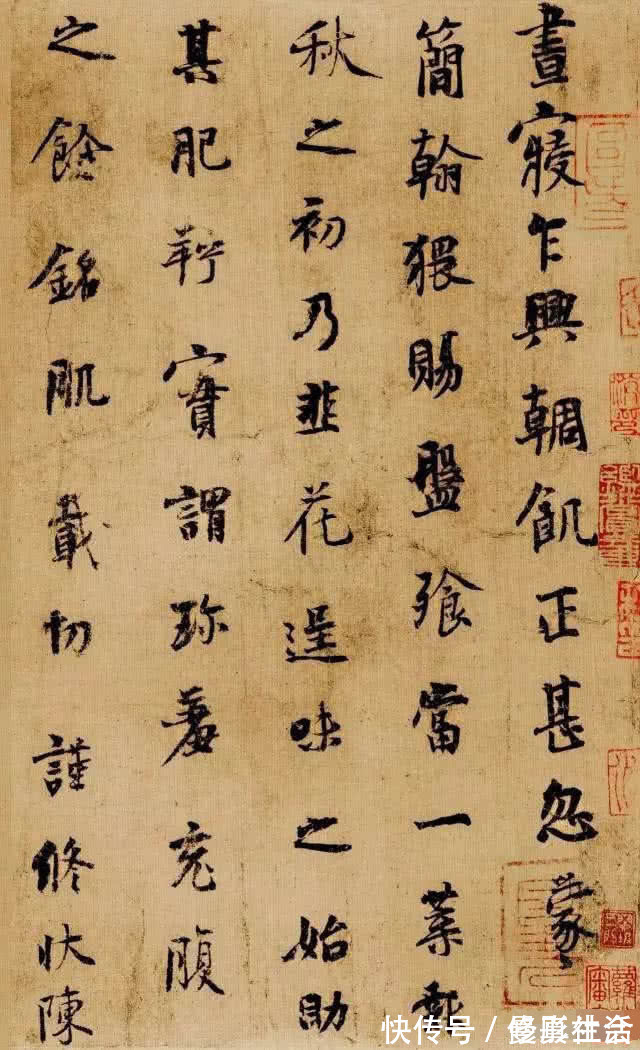 晝寢乍興輖飢正甚忽蒙
簡翰猥賜盤飧當一葉報
秋之初乃韭花逞味之始助
其肥羜實謂珎羞充腹
之餘銘肌載切謹修狀陳
快传号／